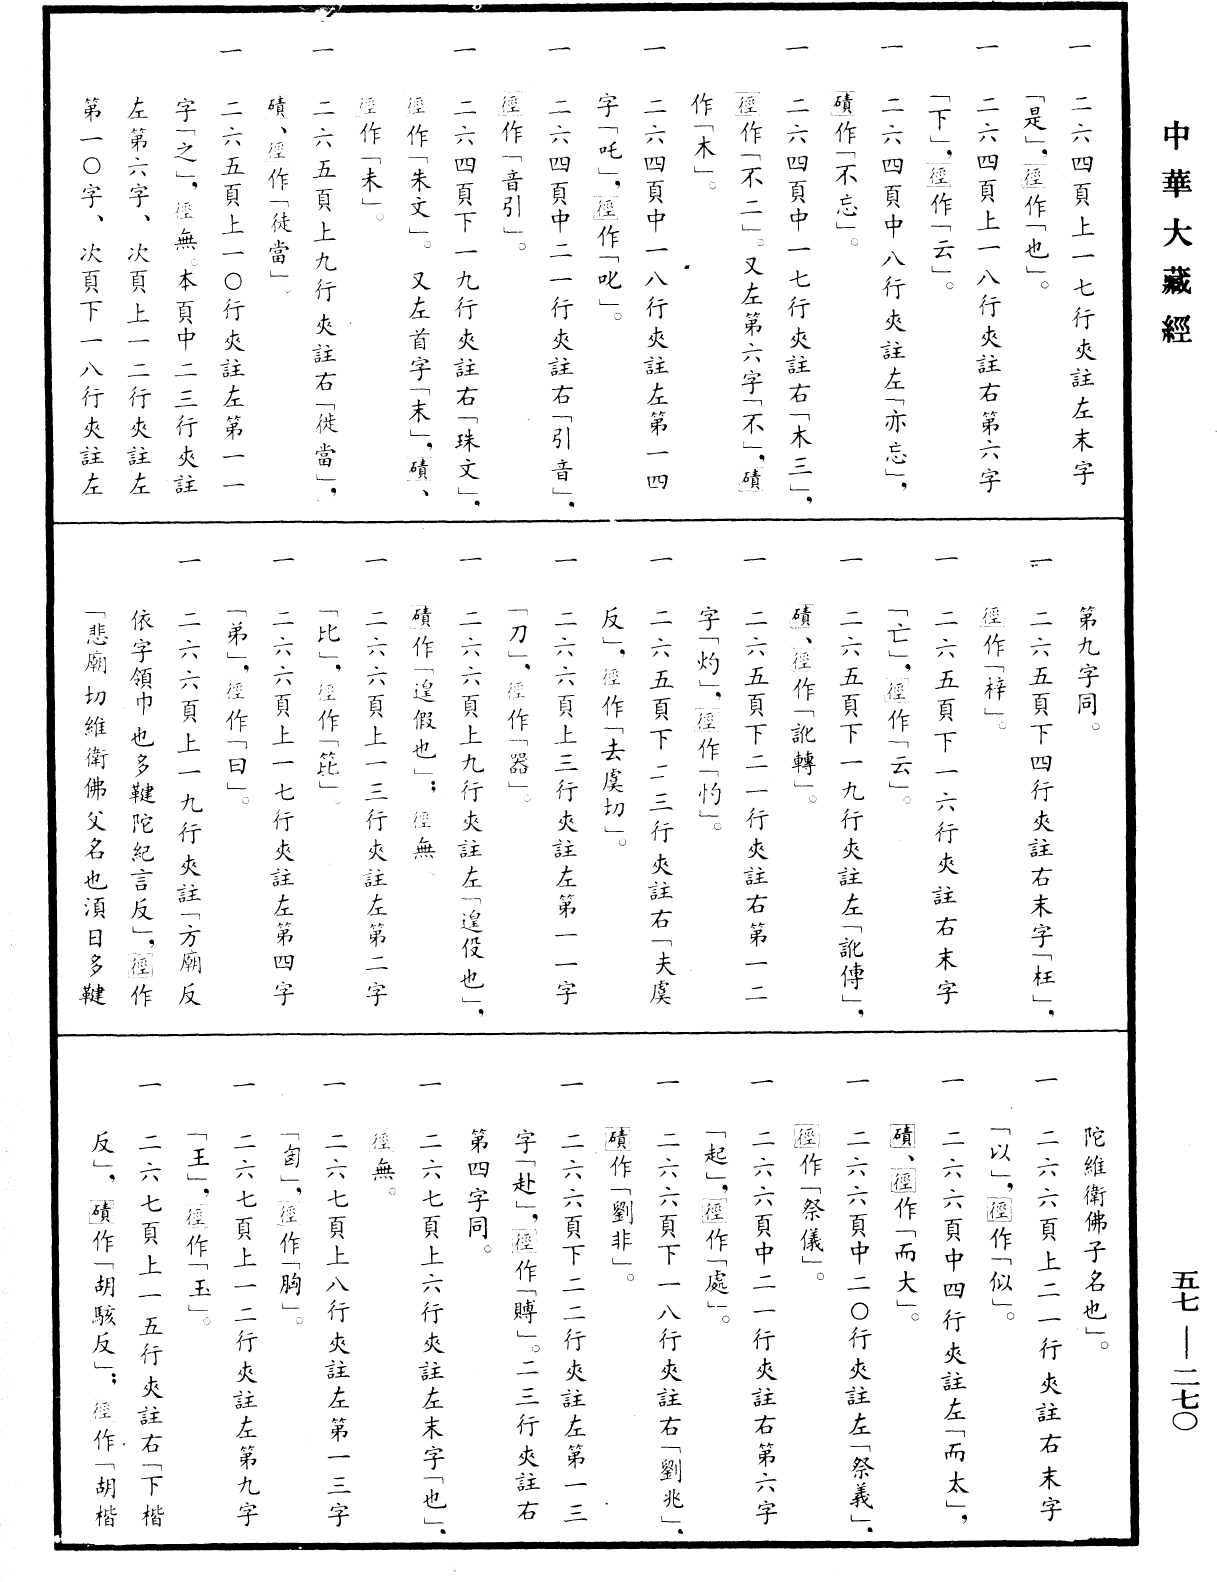 中華大藏經
一 二六四頁上一七行夾註左末字
「是」，徑作「也」。
一 二六四頁上一八行夾註右第六字
「下」，徑作「云」。
一 二六四頁中八行夾註左「亦忘」，
磧作「不忘」。
一 二六四頁中一七行夾註右「木三」，
徑作「不二」。又左第六字「不」，磧
作「木」。
一 二六四頁中一八行夾註左第一四
字「吒」，徑作「叱」。
一 二六四頁中二一行夾註右「引音」，
徑作「音引」。
一 二六四頁下一九行夾註右「珠文」，
徑作「朱文」。又左首字「末」，磧、
徑作「未」。
一 二六五頁上九行夾註右「徙當」，
磧、徑作「徒當」。
一 二六五頁上一〇行夾註左第一一
字「之」，徑無。本頁中二三行夾註
左第六字、次頁上一二行夾註左
第一〇字、次頁下一八行夾註左
第九字同。
一 二六五頁下四行夾註右末字「枉」，
徑作「梓」。
一 二六五頁下一六行夾註右末字
「亡」，徑作「云」。
一 二六五頁下一九行夾註左「訛傳」，
磧、徑作「訛轉」。
一 二六五頁下二一行夾註右第一二
字「灼」，徑作「忉」。
一 二六五頁下二三行夾註右「夫虞
反」，徑作「去虞切」。
一 二六六頁上三行夾註左第一一字
「刀」，徑作「器」。
一 二六六頁上九行夾註左「遑伇也」，
磧作「遑假也」；徑無。
一 二六六頁上一三行夾註左第二字
「比」，徑作「箆」。
一 二六六頁上一七行夾註左第四字
「弟」，徑作「曰」。
一 二六六頁上一九行夾註「方廟反
依字領巾也多鞬陀紀言反」，徑作
「悲廟切維衛佛父名也湏日多鞬
陀維衛佛子名也」。
一 二六六頁上二一行夾註右末字
「以」，徑作「似」。
一 二六六頁中四行夾註左「而太」，
磧、徑作「而大」。
一 二六六頁中二〇行夾註左「祭義」，
徑作「祭儀」。
一 二六六頁中二一行夾註右第六字
「起」，徑作「處」。
一 二六六頁下一八行夾註右「劉兆」，
磧作「劉非」。
一 二六六頁下二二行夾註左第一三
字「赴」，徑作「賻」。二三行夾註右
第四字同。
一 二六七頁上六行夾註左末字「也」，
徑無。
一 二六七頁上八行夾註左第一三字
「匈」，徑作「胸」。
一 二六七頁上一二行夾註左第九字
「王」，徑作「玉」。
一 二六七頁上一五行夾註右「下楷
反」，磧作「胡駭反」；徑作「胡楷
五七—二七〇